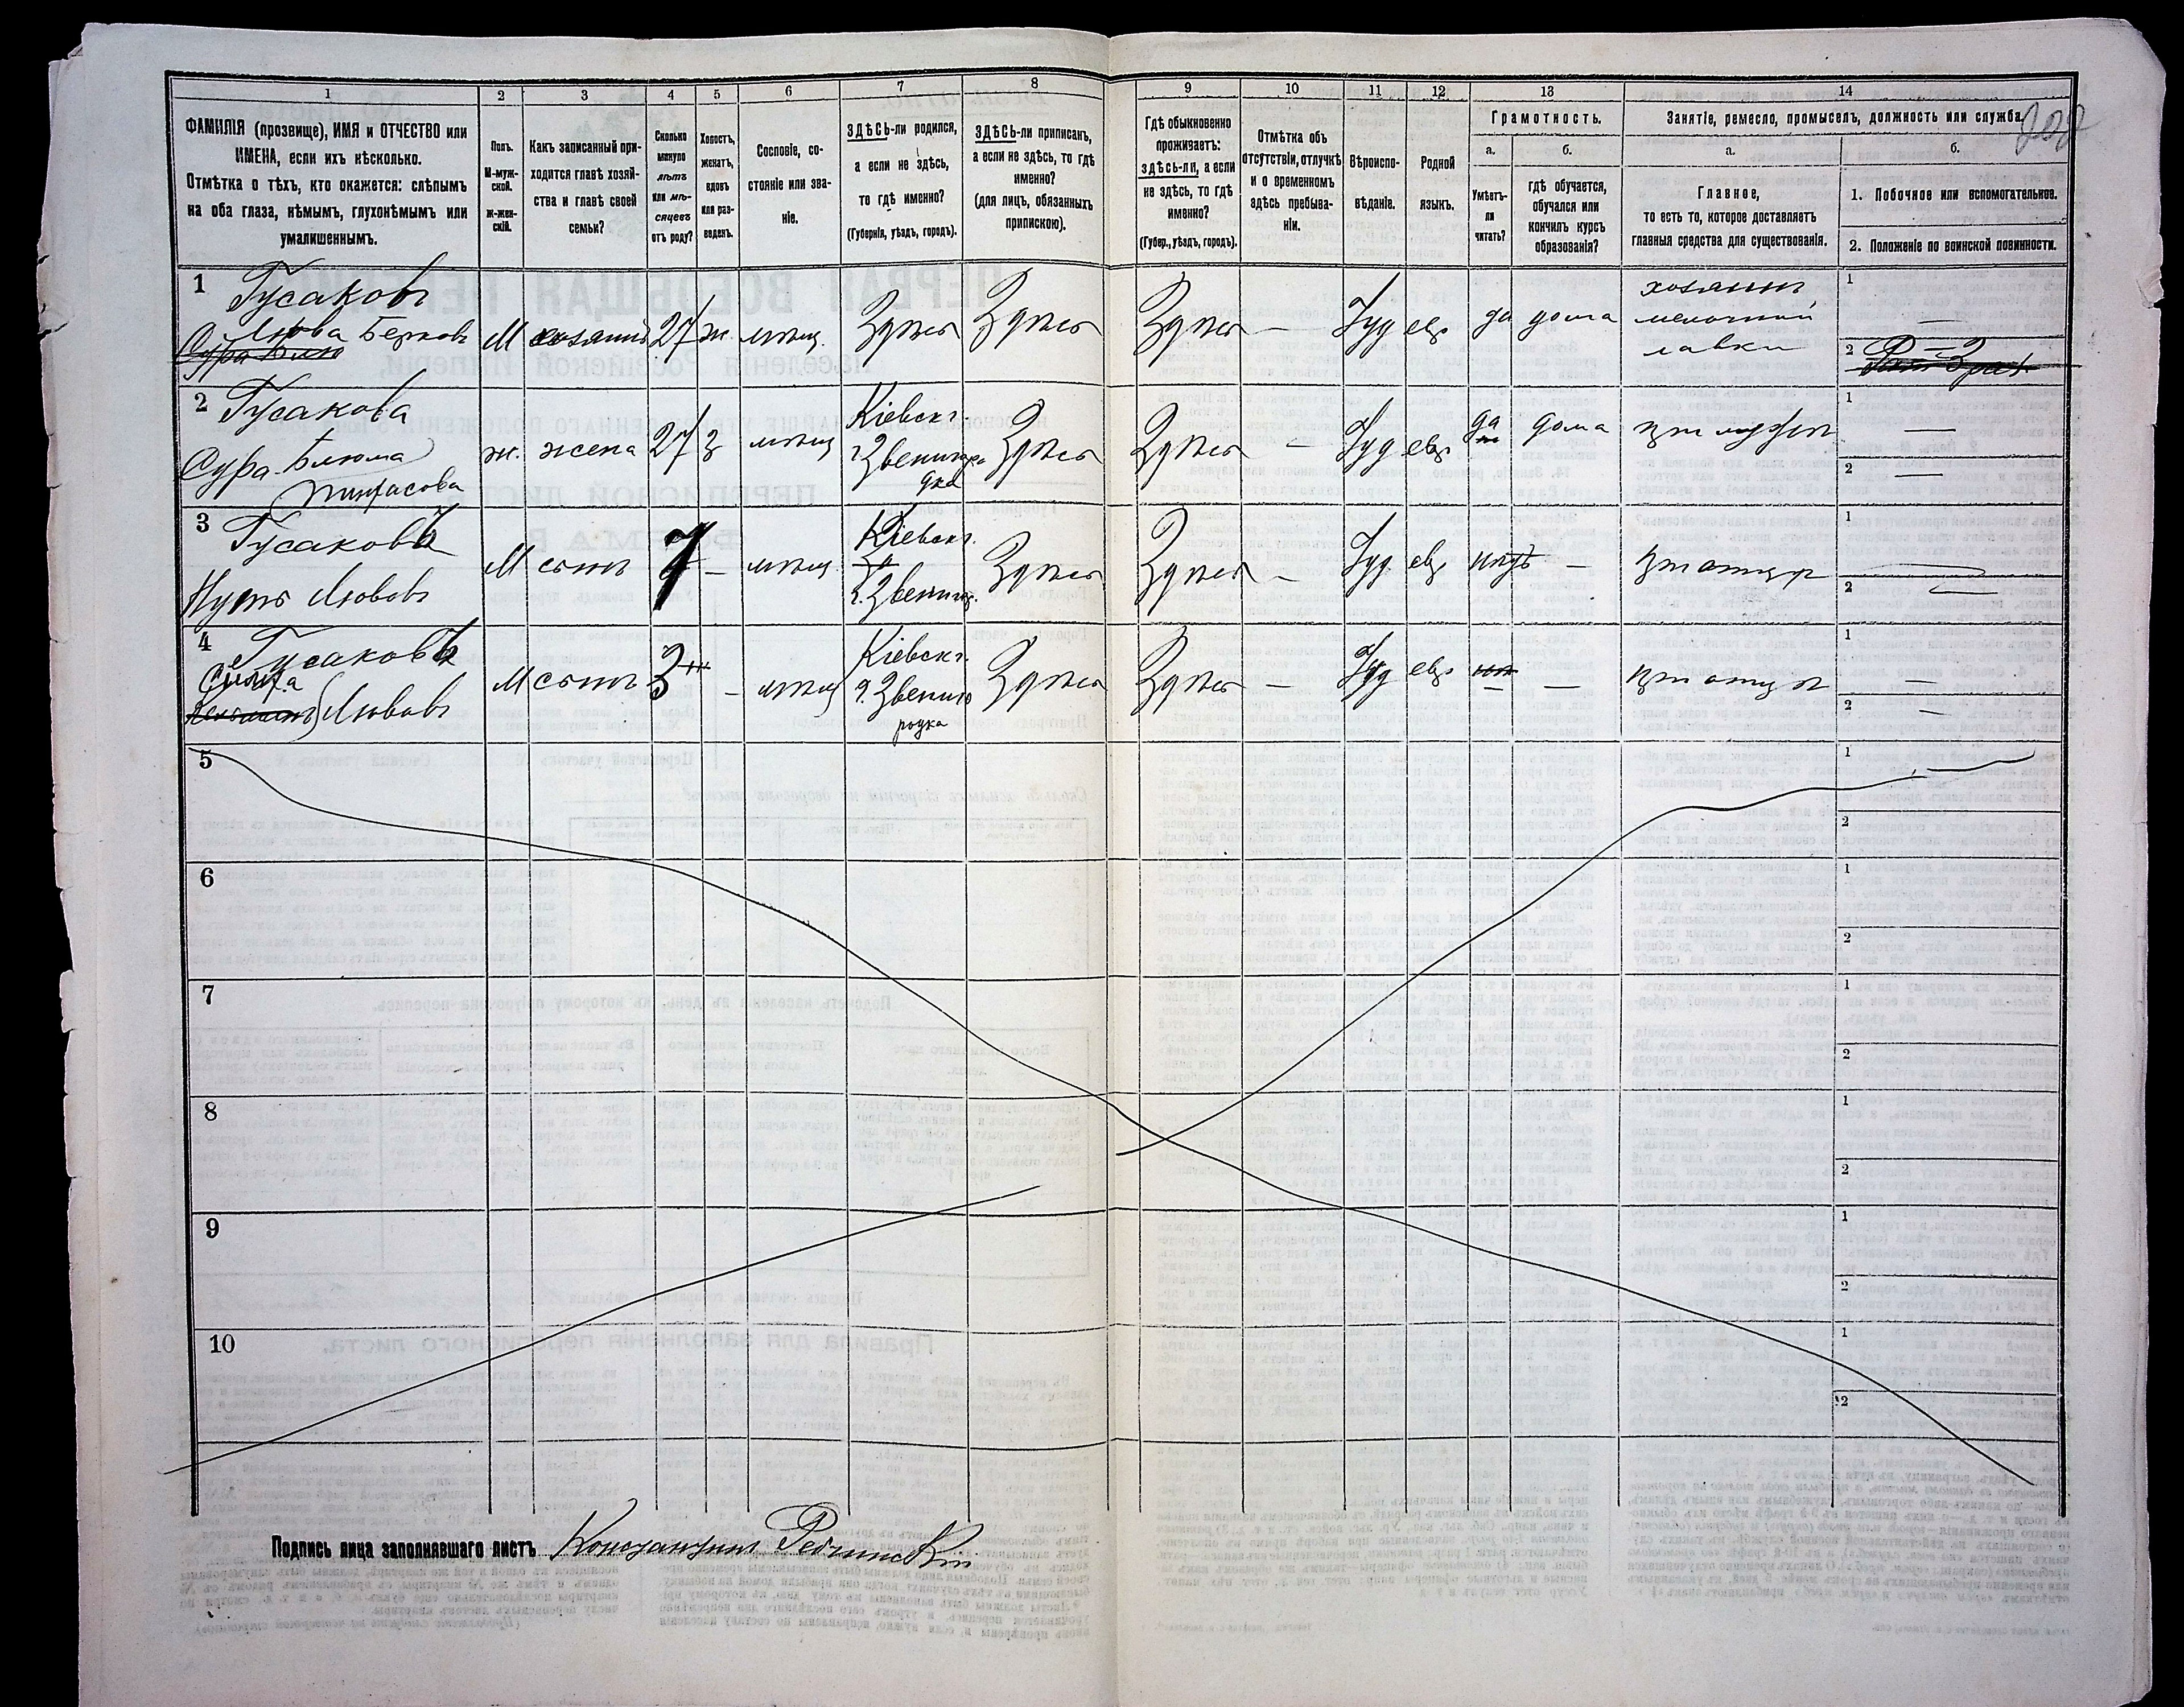 1 2 3 4 5 6 7 8 9 10 11 12 13 14
ФАМИЛІЯ (прозвище), ИМЯ и ОТЧЕСТВО или
ИМЕНА, если ихъ нѣсколько.
Отмѣтка о тѣхъ, кто окажется: слѣпымъ
на оба глаза, нѣмымъ, глухонѣмымъ или
умалишеннымъ.
Полъ.
М-муж-
ской.
ж-жен-
скій.
Какъ записанный при-
ходится главѣ хозяй-
ства и главѣ своей
семьи?
Сколько
минуло
лѣтъ
или мѣ-
сяцевъ
отъ роду?
Холостъ,
женатъ,
вдовъ
или раз-
веденъ.
Сословіе, со-
стояніе или зва-
ніе.
ЗДѢСЬ-ли родился,
а если не здѣсь,
то гдѣ именно?
(Губернія, уѣздъ, городъ).
ЗДѢСЬ-ли приписанъ,
а если не здѣсь, то гдѣ
именно?
(для лицъ, обязанныхъ
припискою).
Гдѣ обыкновенно
проживаетъ:
здѣсь-ли, а если
не здѣсь, то гдѣ
именно?
(Губер., уѣздъ, городъ).
Отмѣтка объ
отсутствіи, отлучкѣ
и о временномъ
здѣсь пребыва-
ніи.
Вѣроиспо-
вѣданіе.
Родной
языкъ.
Грамотность.
а.
Умѣетъ-
ли
читать?
б.
гдѣ обучается,
обучался или
кончилъ курсъ
образованія?
Занятіе, ремесло, промыселъ, должность или служба.
а.
Главное,
то есть то, которое доставляетъ
главныя средства для существованія.
б.
1. Побочное или вспомогательное.
2. Положеніе по воинской повинности.
1 Гусаковъ
Люва Берковъ М хозяинъ 27 ж. мѣщ. Здѣсь Здѣсь Здѣсь — Іуд евр да дома хозяинъ
мелочной
лавки
1 —
2
2 Гусакова
Сура-Блюма
Пинхасова ж. жена 27 з мѣщ Кіевск г.
г. Звениго
родка Здѣсь Здѣсь — Іуд евр. да дома при мужѣ
1 —
2 —
3 Гусаковъ
Нутъ Лювовъ М сынъ 7 — мѣщ Кіевск г.
г. Звениг. Здѣсь Здѣсь — Іуд евр нѣтъ — при отцѣ
1 —
2 —
4 Гусаковъ
Лювовъ М сынъ 3 — мѣщ Кіевск г.
г. Звениго
родка Здѣсь Здѣсь — Іуд евр — — при отцѣ
1 —
2 —
5 1
2
6 1
2
7 1
2
8 1
2
9 1
2
10 1
2
Подпись лица заполнявшаго листъ Константинъ